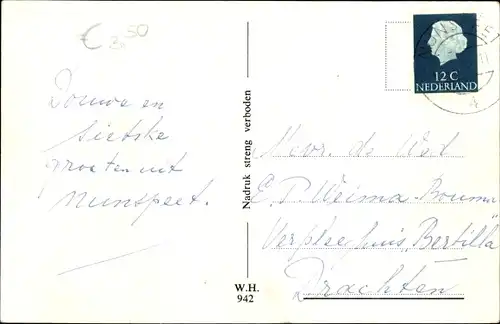 € 3.50
12 C
NEDERLAND
Douwe en
Sietske
groeten uit
Nunspeet.
Nadruk streng verboden
Mevr. de Wed
E. P. Weima-Bouma
Verpleeghuis, Bertilla
Drachten
W.H.
942